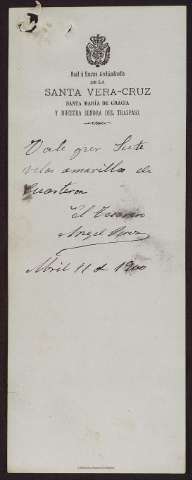 Real é Ilustre Archicofradía
DE LA
SANTA VERA-CRUZ
SANTA MARÍA DE GRACIA
Y NUESTRA SEÑORA DEL TRASPASO
Vale por Siete
velas amarillas de
cuarteron
El Tesorero
Angel
Abril 11 de 1900